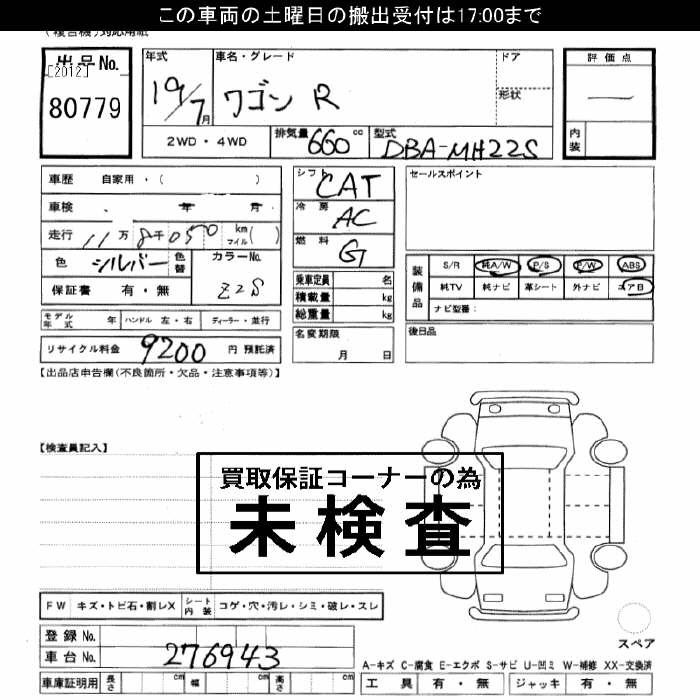 この車両の土曜日の搬出受付は17:00まで
出品No.
[2012]
80779
年式
19/7月
車名・グレード
ワゴン R
ドア
形状
評価点
内装
2WD・4WD
排気量 660 cc
型式 DBA-MH22S
車歴 自家用・( )
車検 年 月
走行 11万 8千 050 km マイル( )
色 シルバー 色替
カラーNo. Z2S
保証書 有・無
シフト CAT
冷房 AC
燃料 G
乗車定員 名
積載量 kg
総重量 kg
セールスポイント
装備品
S/R 純A/W P/S P/W ABS
純TV 純ナビ 革シート 外ナビ エアB
ナビ型番:
モデル年式 年 ハンドル 左・右 ディーラー・並行
リサイクル料金 9200 円 預託済
名変期限 月 日
後日品
【出品店申告欄(不良箇所・欠品・注意事項等)】
【検査員記入】
買取保証コーナーの為
未検査
FW キズ・トビ石・割レX シート内装 コゲ・穴・汚レ・シミ・破レ・スレ
登録No.
車台No. 276943
車庫証明用 長さ cm 幅 cm 高さ cm
スペア
A-キズ C-腐食 E-エクボ S-サビ U-凹ミ W-補修 XX-交換済
工具 有・無 ジャッキ 有・無